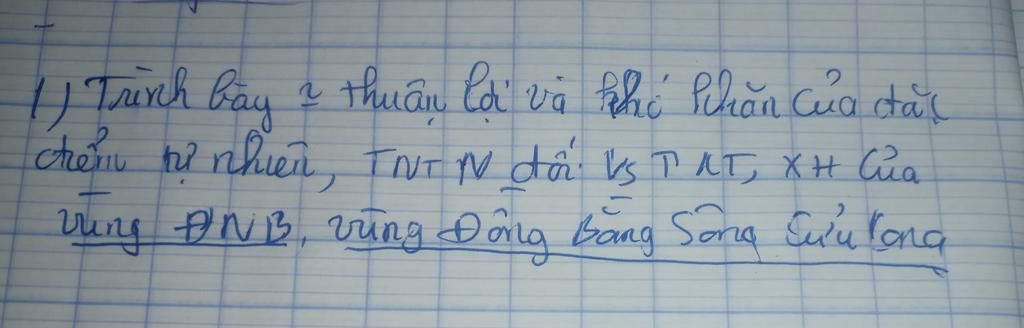 1) Trình bày 2 thuận lợi và khó khăn của đặc
điểm tự nhiên, TNTN đối vs TKT, XH của
vùng ĐNB, vùng Đồng bằng Sông Cửu long